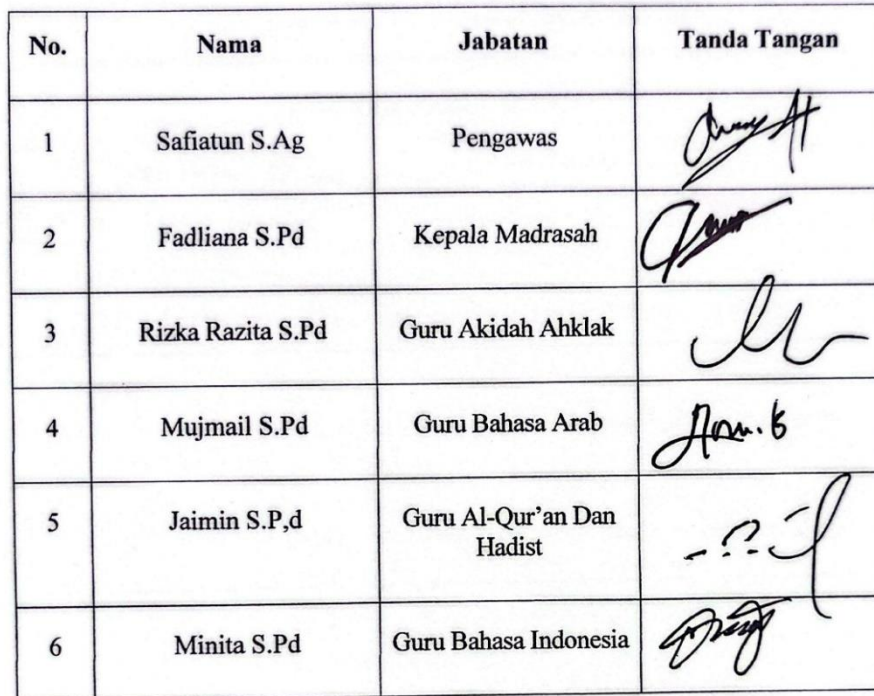 No. Nama Jabatan Tanda Tangan
1 Safiatun S.Ag Pengawas
2 Fadliana S.Pd Kepala Madrasah
3 Rizka Razita S.Pd Guru Akidah Ahklak
4 Mujmail S.Pd Guru Bahasa Arab
5 Jaimin S.P,d Guru Al-Qur’an Dan
Hadist
6 Minita S.Pd Guru Bahasa Indonesia